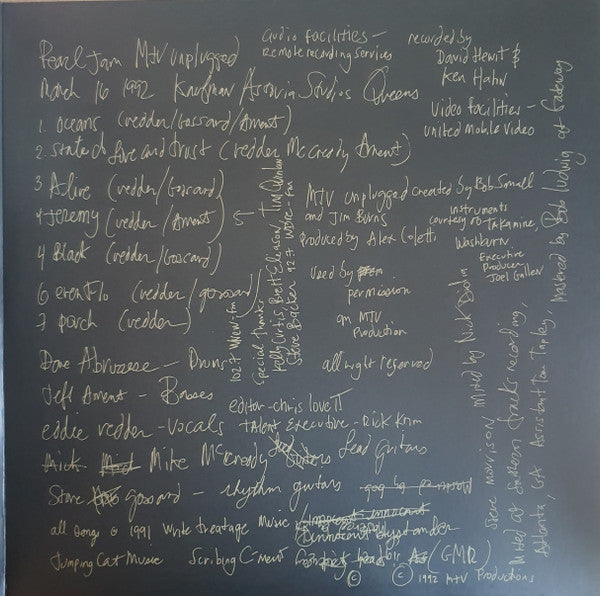 Pearl Jam MTV unplugged
March 16 1992 Kaufman Astoria Studios Queens
audio facilities -
Remote recording services
recorded by
David Hewit &
Ken Hahn
Video facilities -
united mobile video
1. oceans (vedder/Gossard/Ament)
2. state of love and trust (vedder McCready Ament)
3 Alive (vedder/Gossard)
4 Jeremy (vedder/Ament) 5
4 Black (vedder/Gossard)
6 evenflo (vedder/gossard)
7 porch (vedder)
102.7 WNEW-FM
Special thanks
Kelly Curtis, Brett Eliason, Tim Quinlan
Steve Backer 92.7 WDRE-FM
MTV unplugged created by Bob Small
and Jim Burns
Produced by Alex Coletti
instruments
courtesy of Takamine,
Washburn
Executive
Producer
Joel Gallen
used by
permission
on MTV
Production
all right reserved
Dave Abruzzese - Drums
Jeff Ament - Basses
eddie vedder - vocals
editor - chris lovett
talent Executive - Rick Krim
Mick Mike McCready Lead guitars
Stone gossard - rhythm guitars
all songs © 1991 Write treatage Music innocent bystander
Jumping Cat Music Scribing C-ment (GMR)
© © 1992 MTV Productions
Steve Morrison Mixed by Nick DiDia
Mixed at Southern tracks recording,
Atlanta, GA Assistant Tom Tapley, Mastered by Bob Ludwig at Gateway